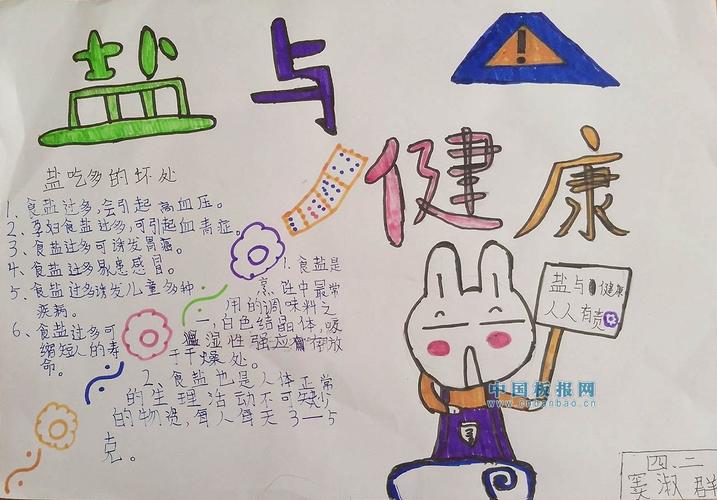 盐与
健康
盐吃多的坏处
1、食盐过多,会引起高血压。
2、孕妇食盐过多,可引起血毒症。
3、食盐过多可诱发胃癌。
4、食盐过多易患感冒。
5、食盐过多诱发儿童多种
疾病。
6、食盐过多可
缩短人的寿
命。
1.食盐是
烹饪中最常
用的调味料之
一,白色结晶体,吸
湿性强应存放
于干燥处。
2、食盐也是人体正常
的生理活动不可缺少
的物资,每人每天3—5
克。
盐与健康
人人有责
中国板报网
www.cnbanbao.cn
四.二
窦淑群